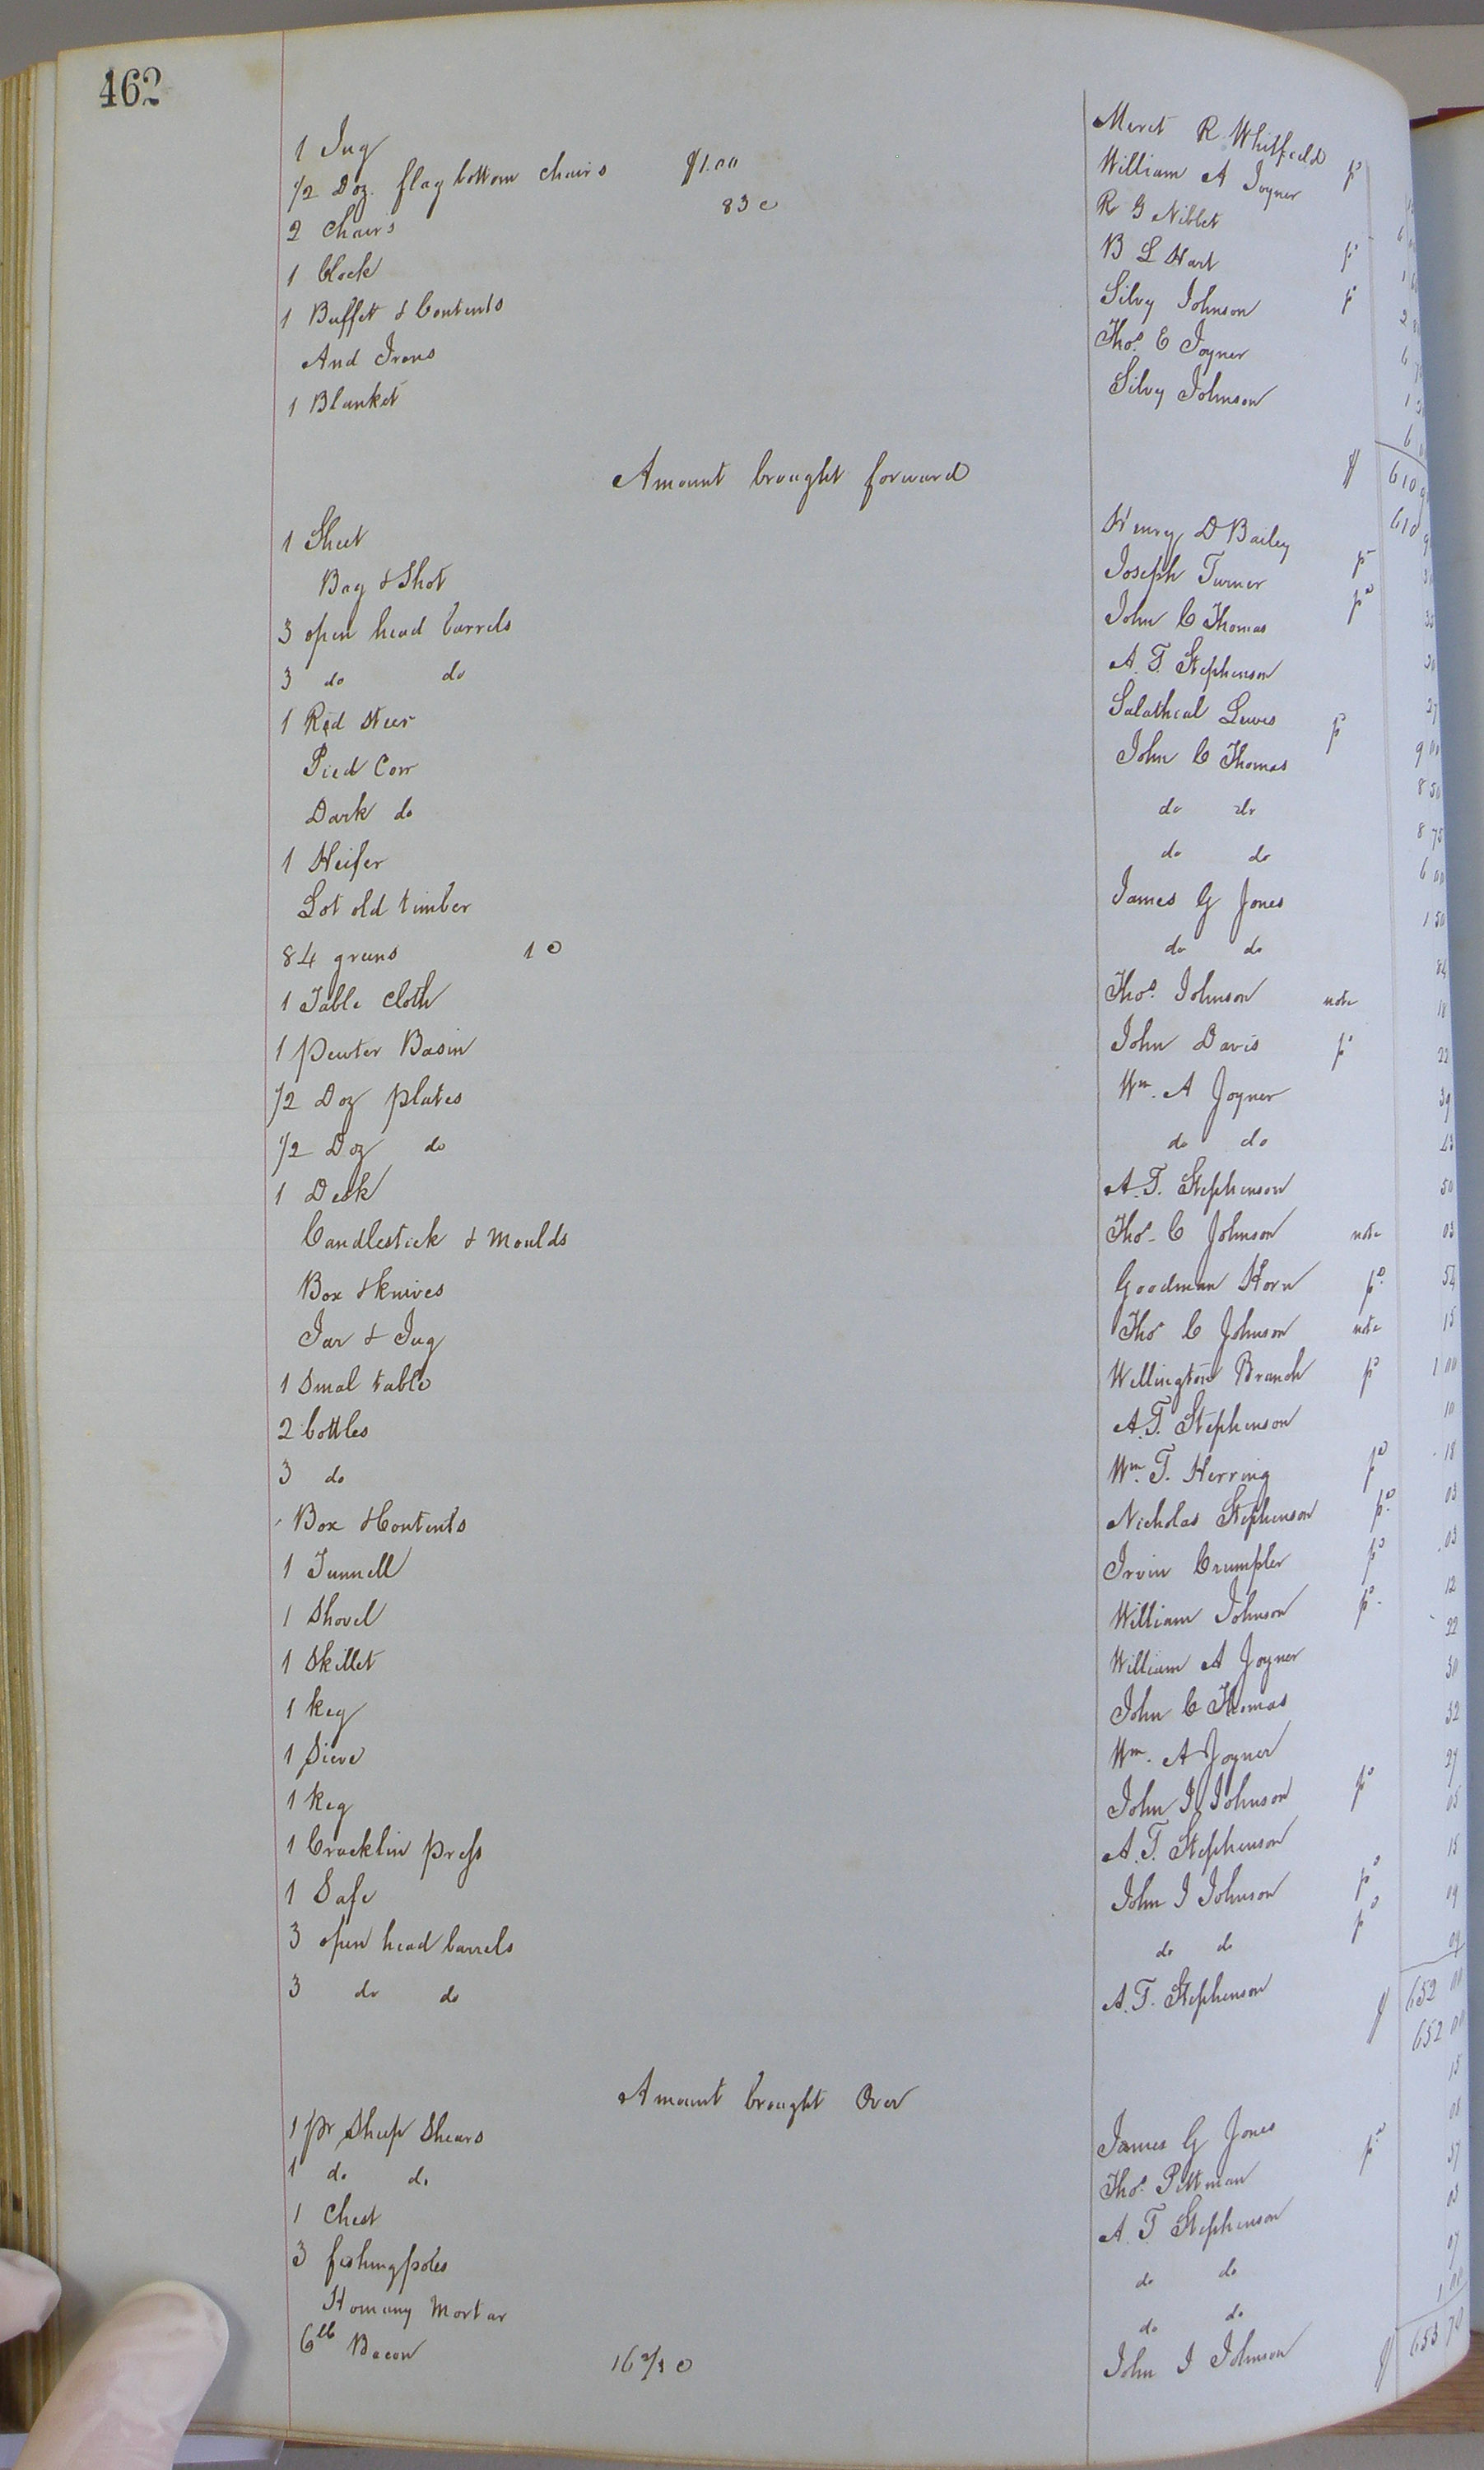 462
1 Jug Meret R. Whitfield pd
1/2 Doz. flag bottom chairs $1.00 William A Joyner 6
2 Chairs 83 c R G Niblet 1
1 Clock B L Hart pd 2
1 Buffett & Contents Silvy Johnson pd 6
And Irons Thos. E Joyner 1
1 Blanket Silvy Johnson 6
$ 610 9
Amount brought forward 610 9
1 Sheet Henry D Bailey pd
Bag & Shot Joseph Turner pd
3 open head barrels John C Thomas
3 do do A. T. Stephenson 27
1 Red Steer Salathial Lewis pd 9 00
Pied Cow John C Thomas 8 50
Dark do do do 8 75
1 Heifer do do 6 00
Lot old timber James G Jones 1 50
84 greens 1 c do do 84
1 Table Cloth Thos. Johnson note 18
1 pewter Basin John Davis pd 22
1/2 Doz plates Wm. A Joyner 39
1/2 Doz do do do 43
1 Desk A. T. Stephenson 50
Candlestick & Moulds Thos. C Johnson note 03
Box & knives Goodman Horn pd. 54
Jar & Jug Thos C Johnson note 15
1 Smal table Wellington Branch pd 1 00
2 bottles A. T. Stephenson 10
3 do Wm. T. Herring pd 18
Box & Contents Nicholas Stephenson pd. 03
1 Tunnell Irvin Crumpler pd 03
1 Shovel William Johnson pd. 12
1 Skillet William A Joyner 22
1 keg John C Thomas 30
1 Sieve Wm. A Joyner 32
1 keg John J Johnson pd 27
1 Cracklin press A. T. Stephenson 05
1 Safe John J Johnson pd 15
3 open head barrels do do pd 09
3 do do A. T. Stephenson 09
$ 652 00
Amount brought Over 652 00
1 pr Sheep Shears James G Jones 15
1 do do Thos. Pittman pd 08
1 Chest A. T Stephenson 37
3 fishing poles do do 03
Homany Mortar do do 07
6 lb Bacon 16 2/3 c John J Johnson 1 00
$ 653 70